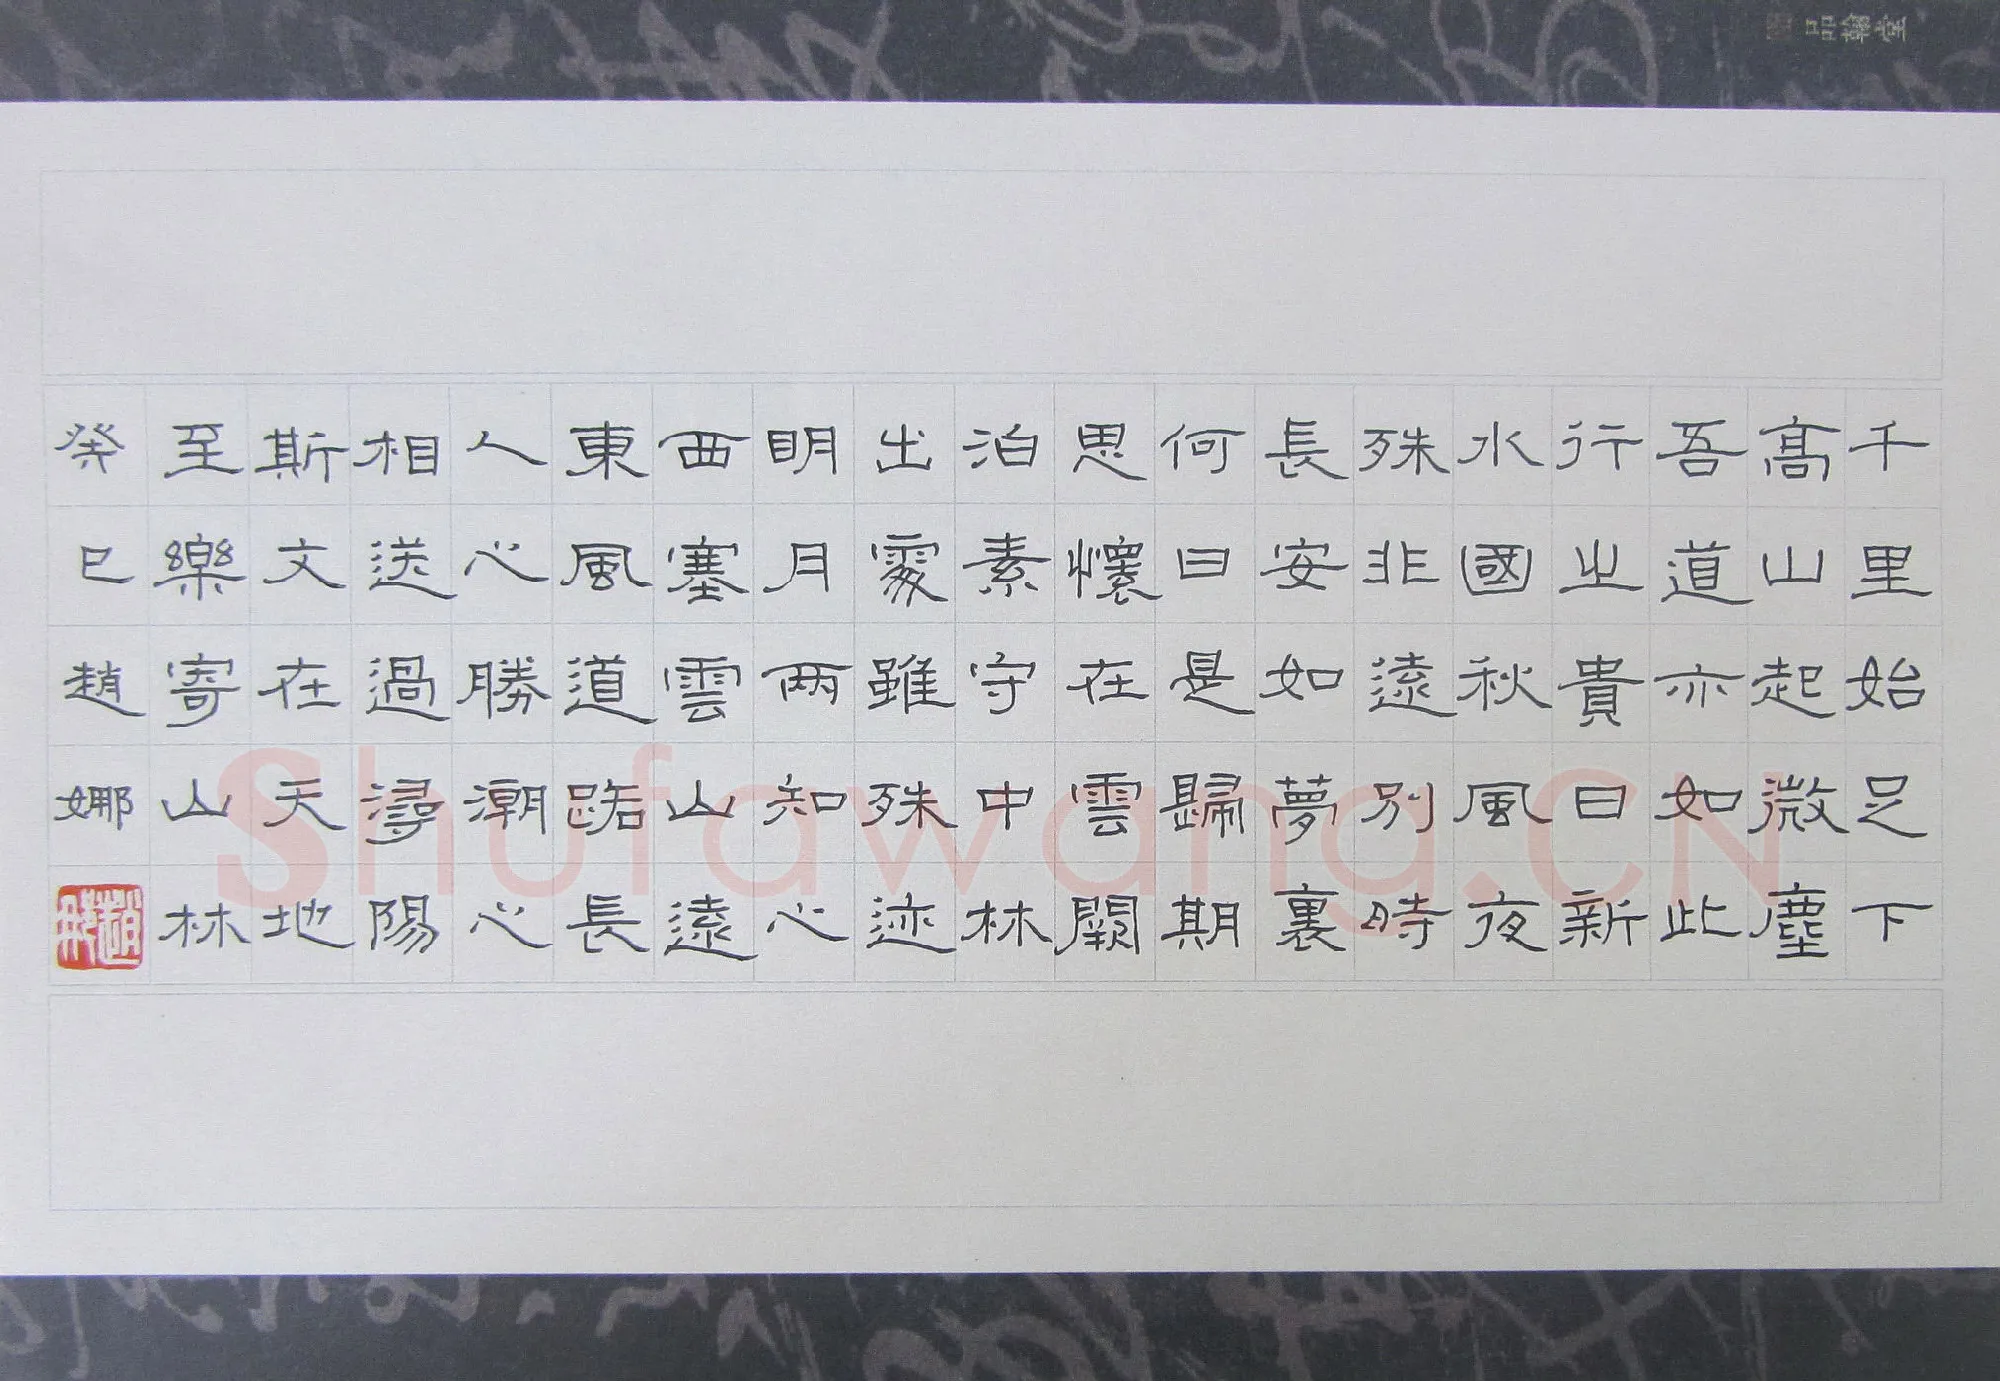 千里始足下
高山起微塵
吾道亦如此
行之貴日新
水國秋風夜
殊非遠別時
長安如夢裏
何日是歸期
思懷在雲闕
泊素守中林
出處雖殊迹
明月兩知心
西塞雲山遠
東風道路長
人心勝潮心
相送過潯陽
斯文在天地
至樂寄山林
癸巳趙娜
品翰堂
Shufawang.CN